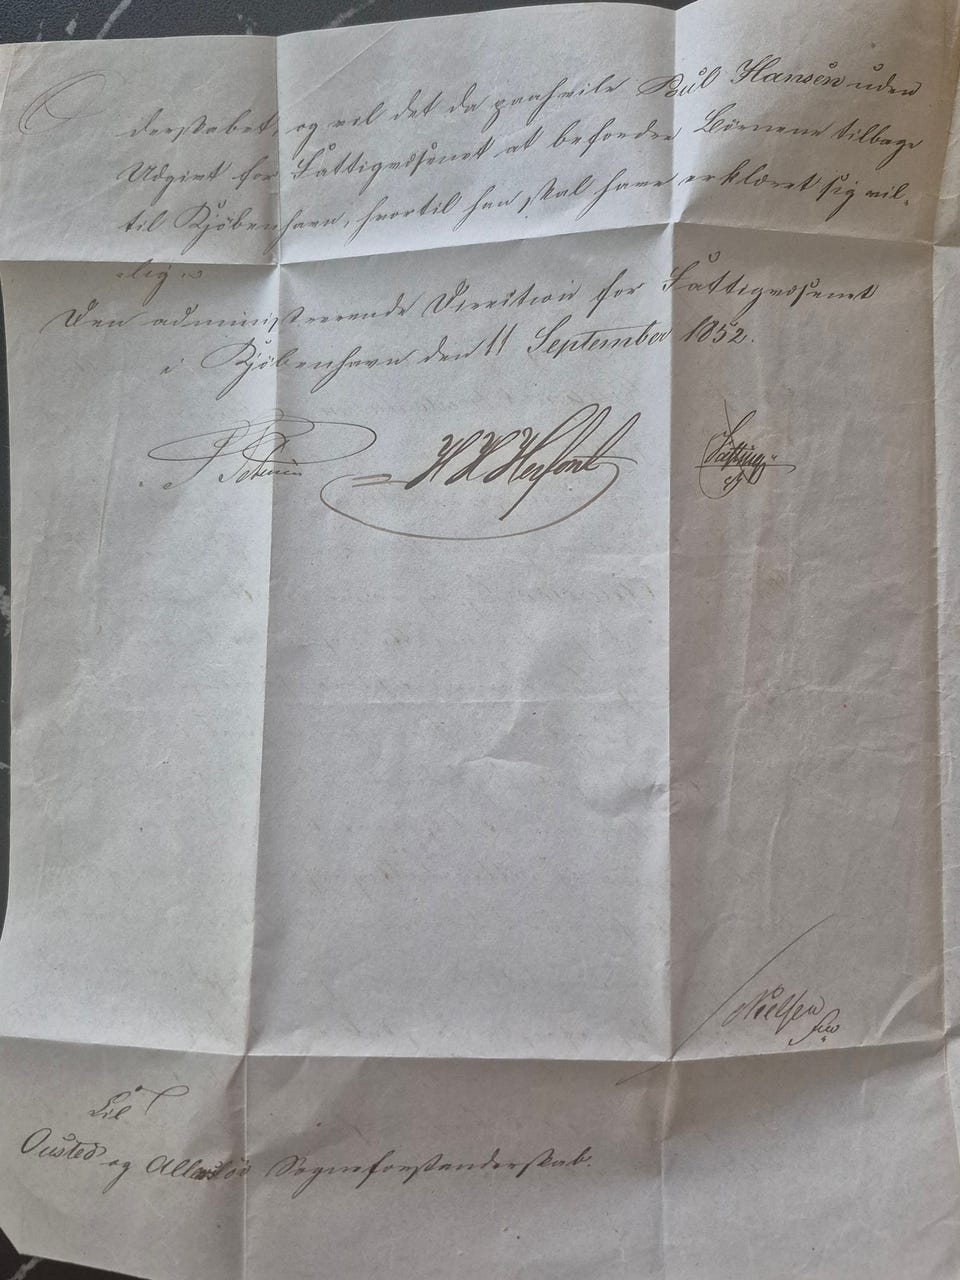 derskabet, og vil det da paahvile Poul Hansen uden
Udgivt for Fattigvæsenet at befordre Börnene tilbage
til Kjöbenhavn, hvortil han skal have erklæret sig vil-
lig.
Den administrerende Direction for Fattigvæsenet
i Kjöbenhavn den 11 September 1852.
Nielsen
Til
Ousted og Allerslöv Sogneforstanderskab.